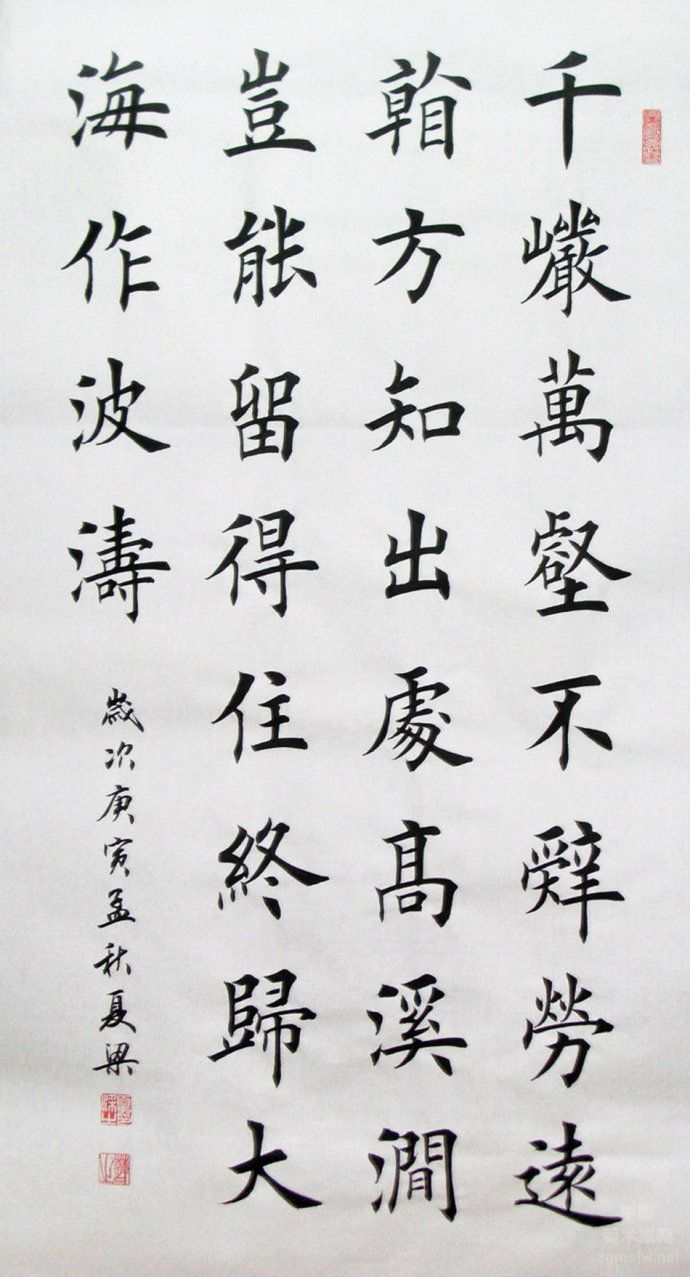 千巖萬壑不辭勞遠
看方知出處高溪澗
豈能留得住終歸大
海作波濤
歲次庚寅孟秋夏梁
zgmsfw.net